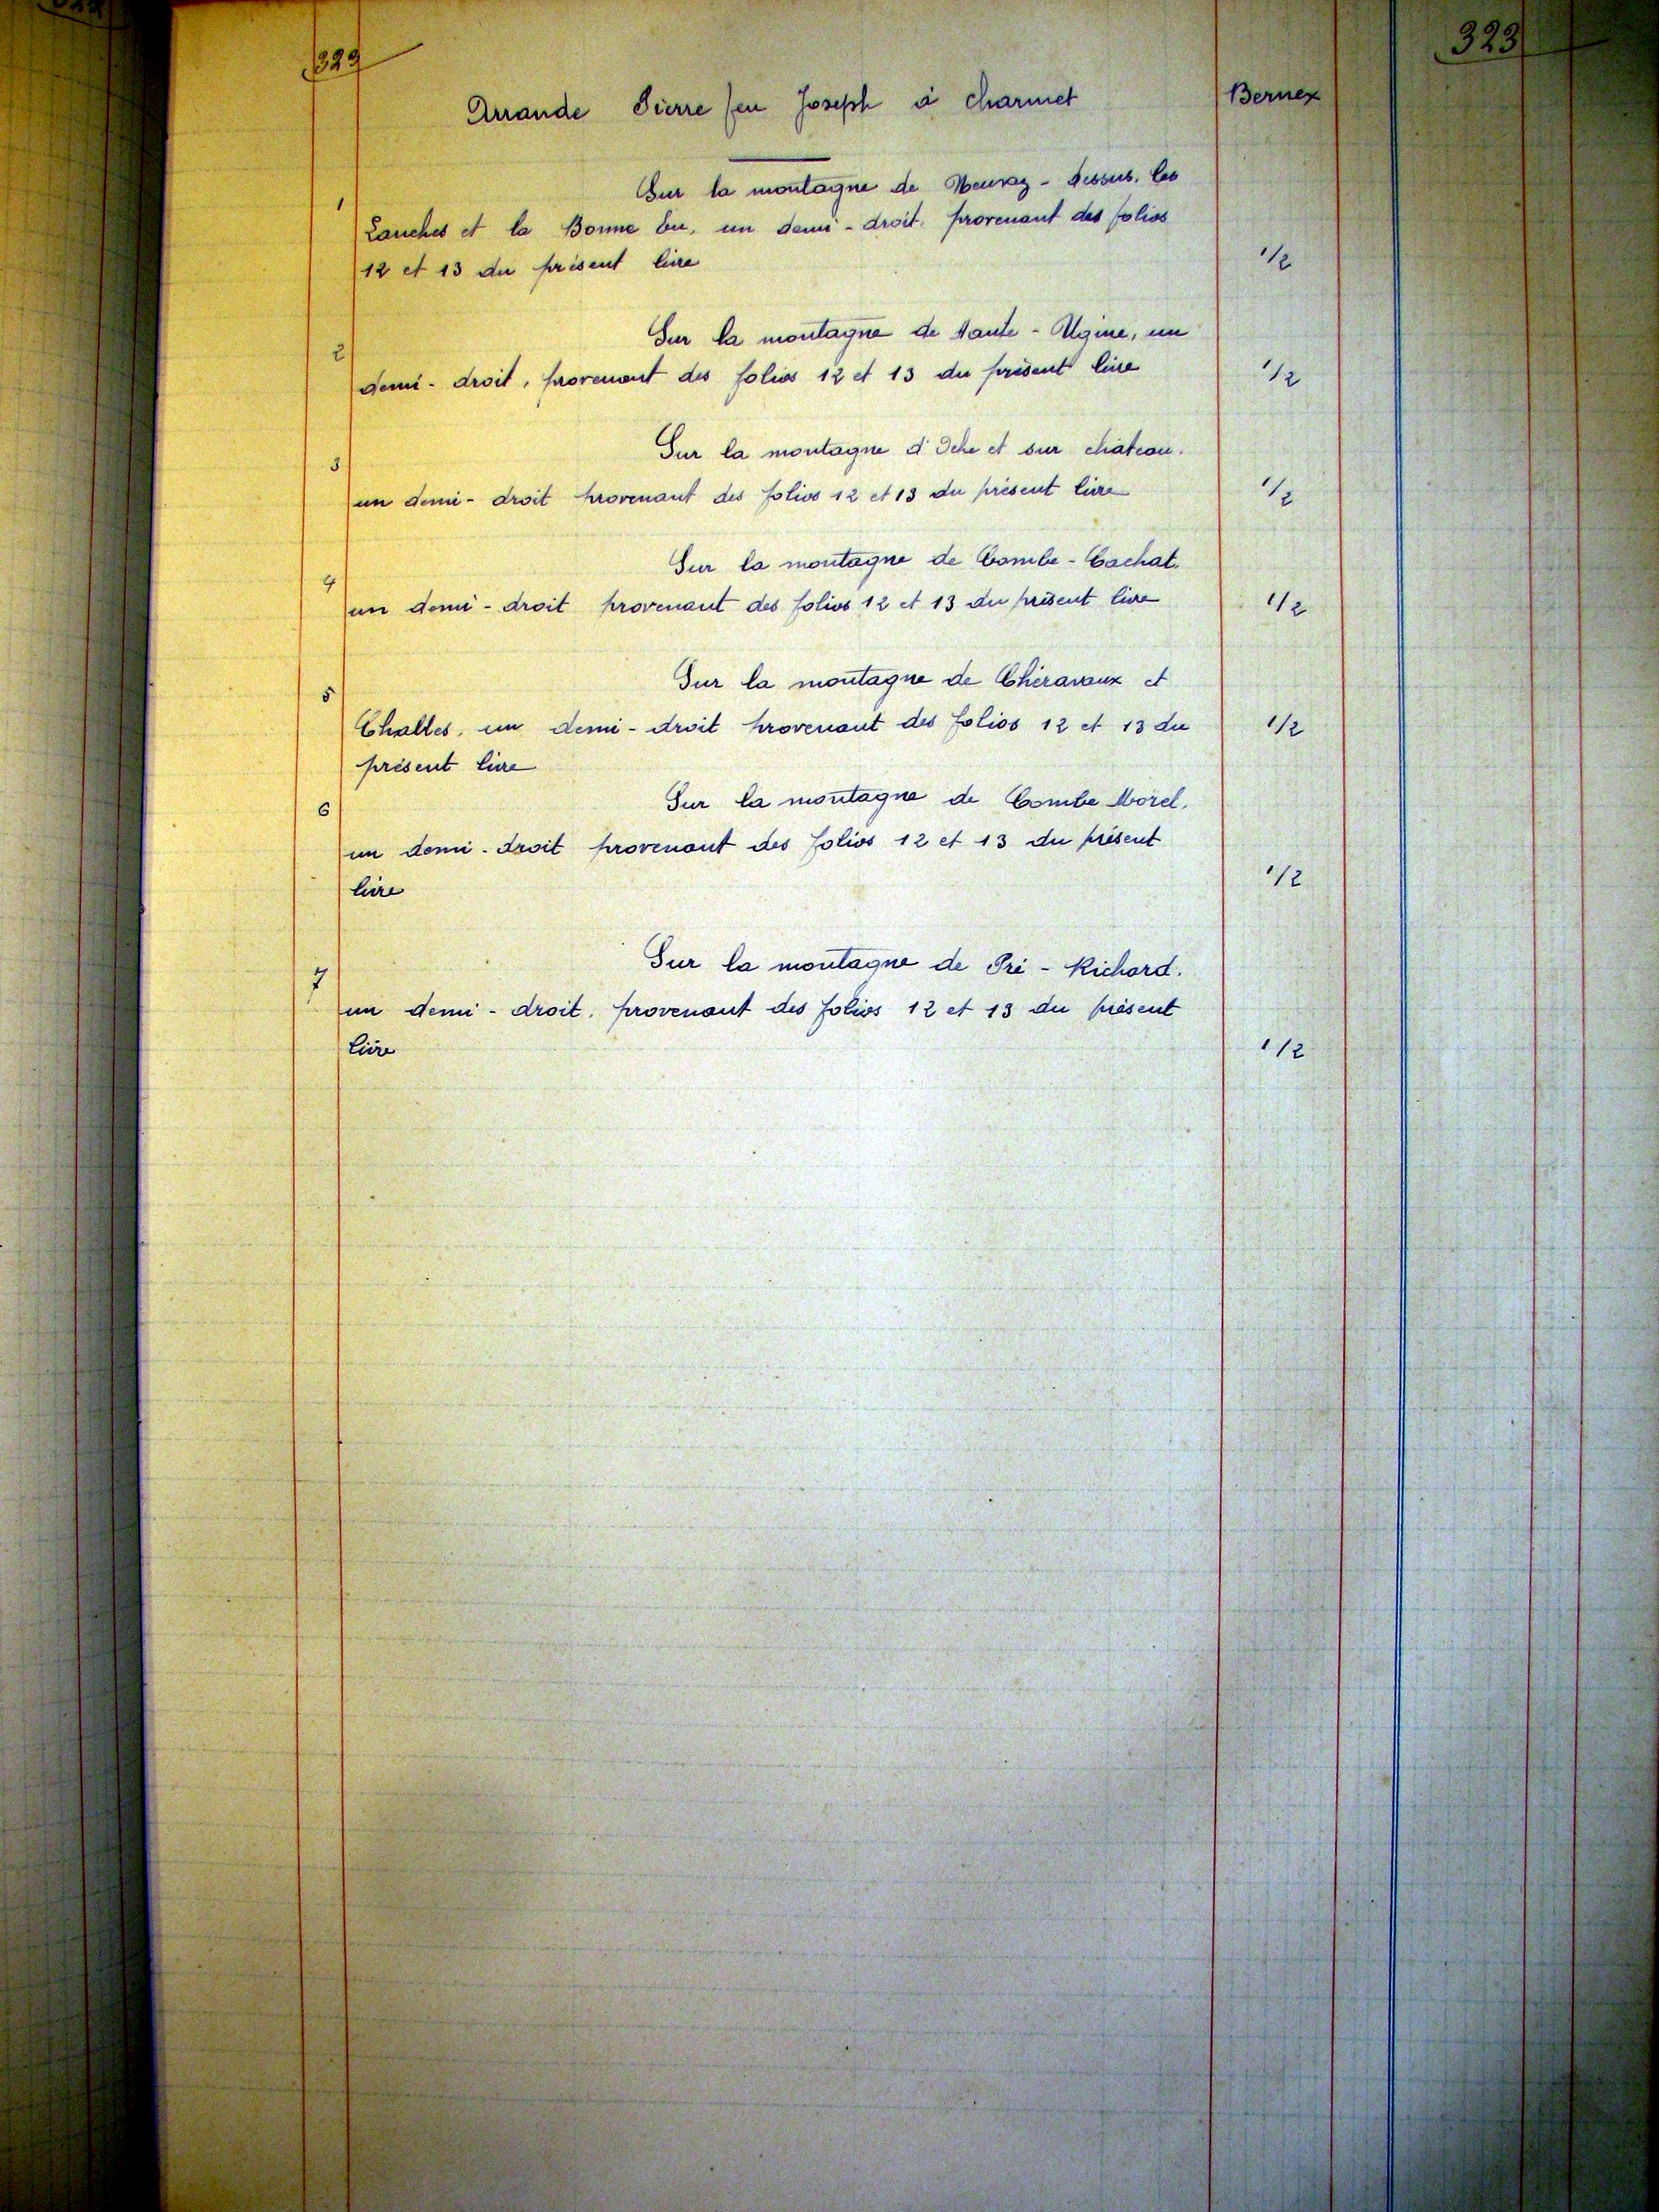 323
323
Arrande Pierre feu Joseph à Charmet
Bernex
Sur la montagne de Neuvaz - dessus, les
1
Lanches et la Bonne Eu, un demi - droit, provenant des folios
12 et 13 du présent livre
1/2
Sur la montagne de Haute - Ugine, un
2
demi - droit, provenant des folios 12 et 13 du présent livre
1/2
Sur la montagne d'Oche et sur château.
3
un demi - droit provenant des folios 12 et 13 du présent livre
1/2
Sur la montagne de Combe - Cachat.
4
un demi - droit provenant des folios 12 et 13 du présent livre
1/2
Sur la montagne de Chéravaux et
5
Challes, un demi - droit provenant des folios 12 et 13 du
1/2
présent livre
Sur la montagne de Combe Morel.
6
un demi - droit provenant des folios 12 et 13 du présent
livre
1/2
Sur la montagne de Pré - Richard.
7
un demi - droit, provenant des folios 12 et 13 du présent
livre
1/2